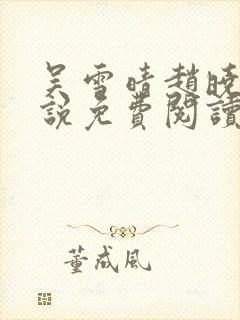 吴雪晴趙曉
說免費閱讀
董成风